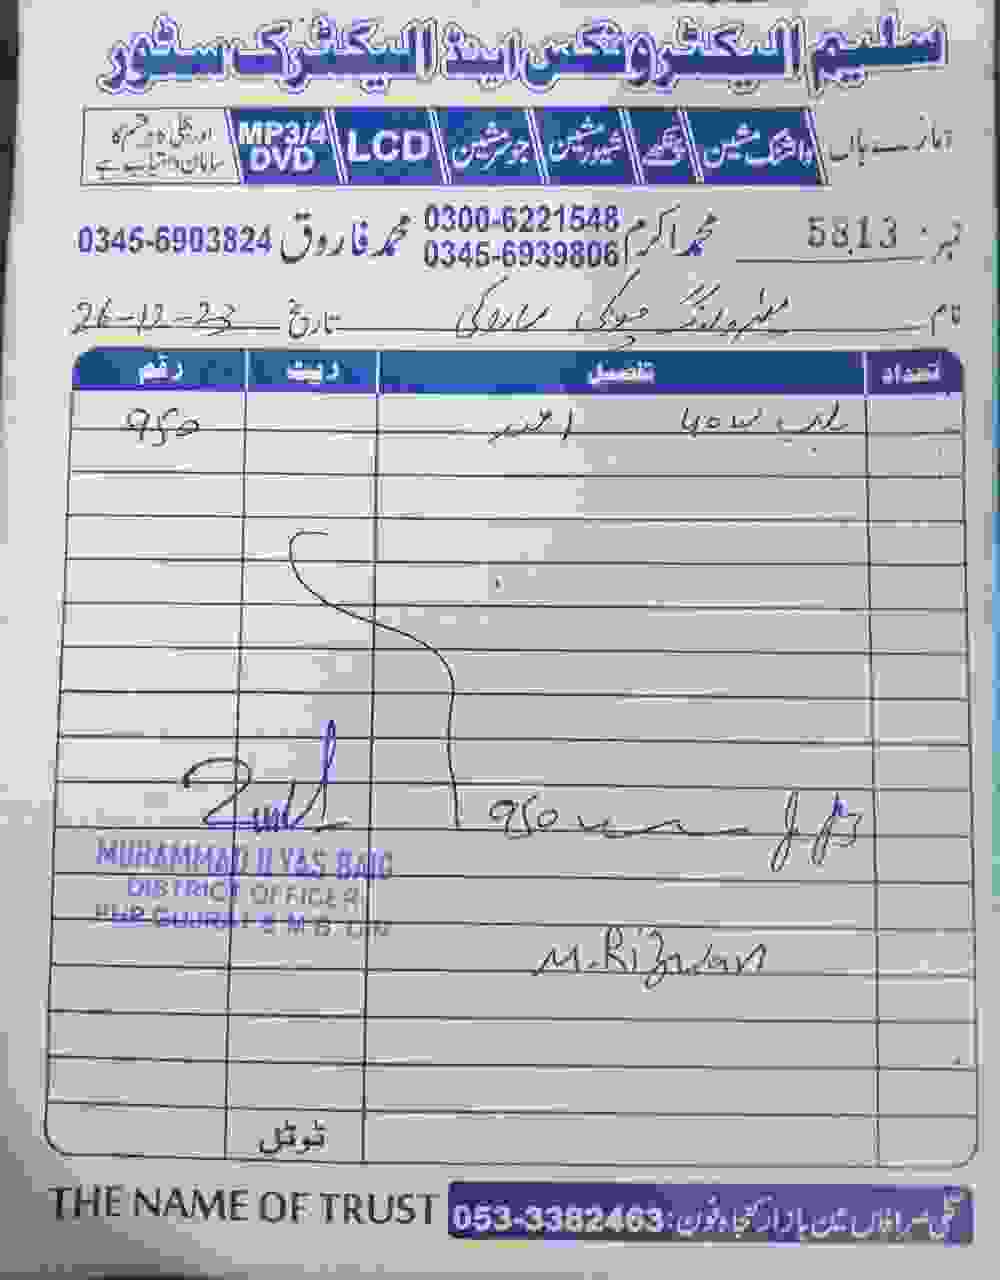 سلیم الیکٹرونکس اینڈ الیکٹرک سٹور
ہمارے ہاں واشنگ مشین پنکھے شیور مشین جوسر مشین LCD MP3/4 DVD اور بجلی کا ہر قسم کا سامان دستیاب ہے
نمبر: 5813 محمد اکرم 0300-6221548 0345-6939806 محمد فاروق 0345-6903824
نام چوکی ساروکی تاریخ 26-12-23
تعداد تفصیل ریٹ رقم
بلب 40W 1 عدد 950
950
MUHAMMAD ILYAS BAIG
DISTRICT OFFICER
PHP GUJRAT & M.B. DIN
M. Rizwan
ٹوٹل
THE NAME OF TRUST
بازار کنجاہ فون: 053-3382463